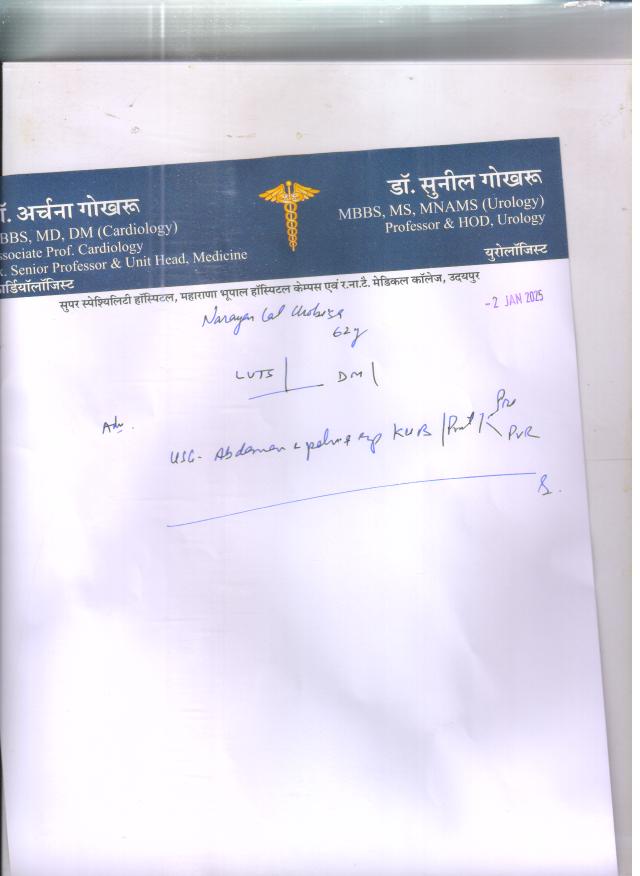 ॉ. अर्चना गोखरू
BBS, MD, DM (Cardiology)
ssociate Prof. Cardiology
x. Senior Professor & Unit Head, Medicine
ार्डियॉलॉजिस्ट
डॉ. सुनील गोखरू
MBBS, MS, MNAMS (Urology)
Professor & HOD, Urology
युरोलॉजिस्ट
सुपर स्पेश्यिलिटी हॉस्पिटल, महाराणा भूपाल हॉस्पिटल केम्पस एवं र.ना.टै. मेडिकल कॉलेज, उदयपुर
-2 JAN 2025
Narayan Lal
62y
LUTS DM
Adv.
USG- Abdomen & pelvis KUB / Prost / Pre
PVR